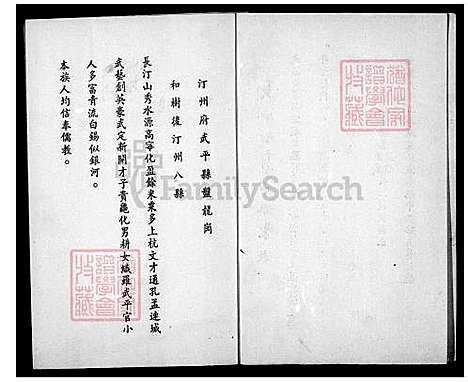 汀州府武平縣盤龍崗
和樹後汀州八縣
長汀山秀水源高寧化盈餘米粟多上杭文才通孔孟連城
武藝創英豪武定新開才子貴龜化男耕女織羅武平官小
人多富青流白錫似銀河。
本族人均信奉儒教。
FamilySearch